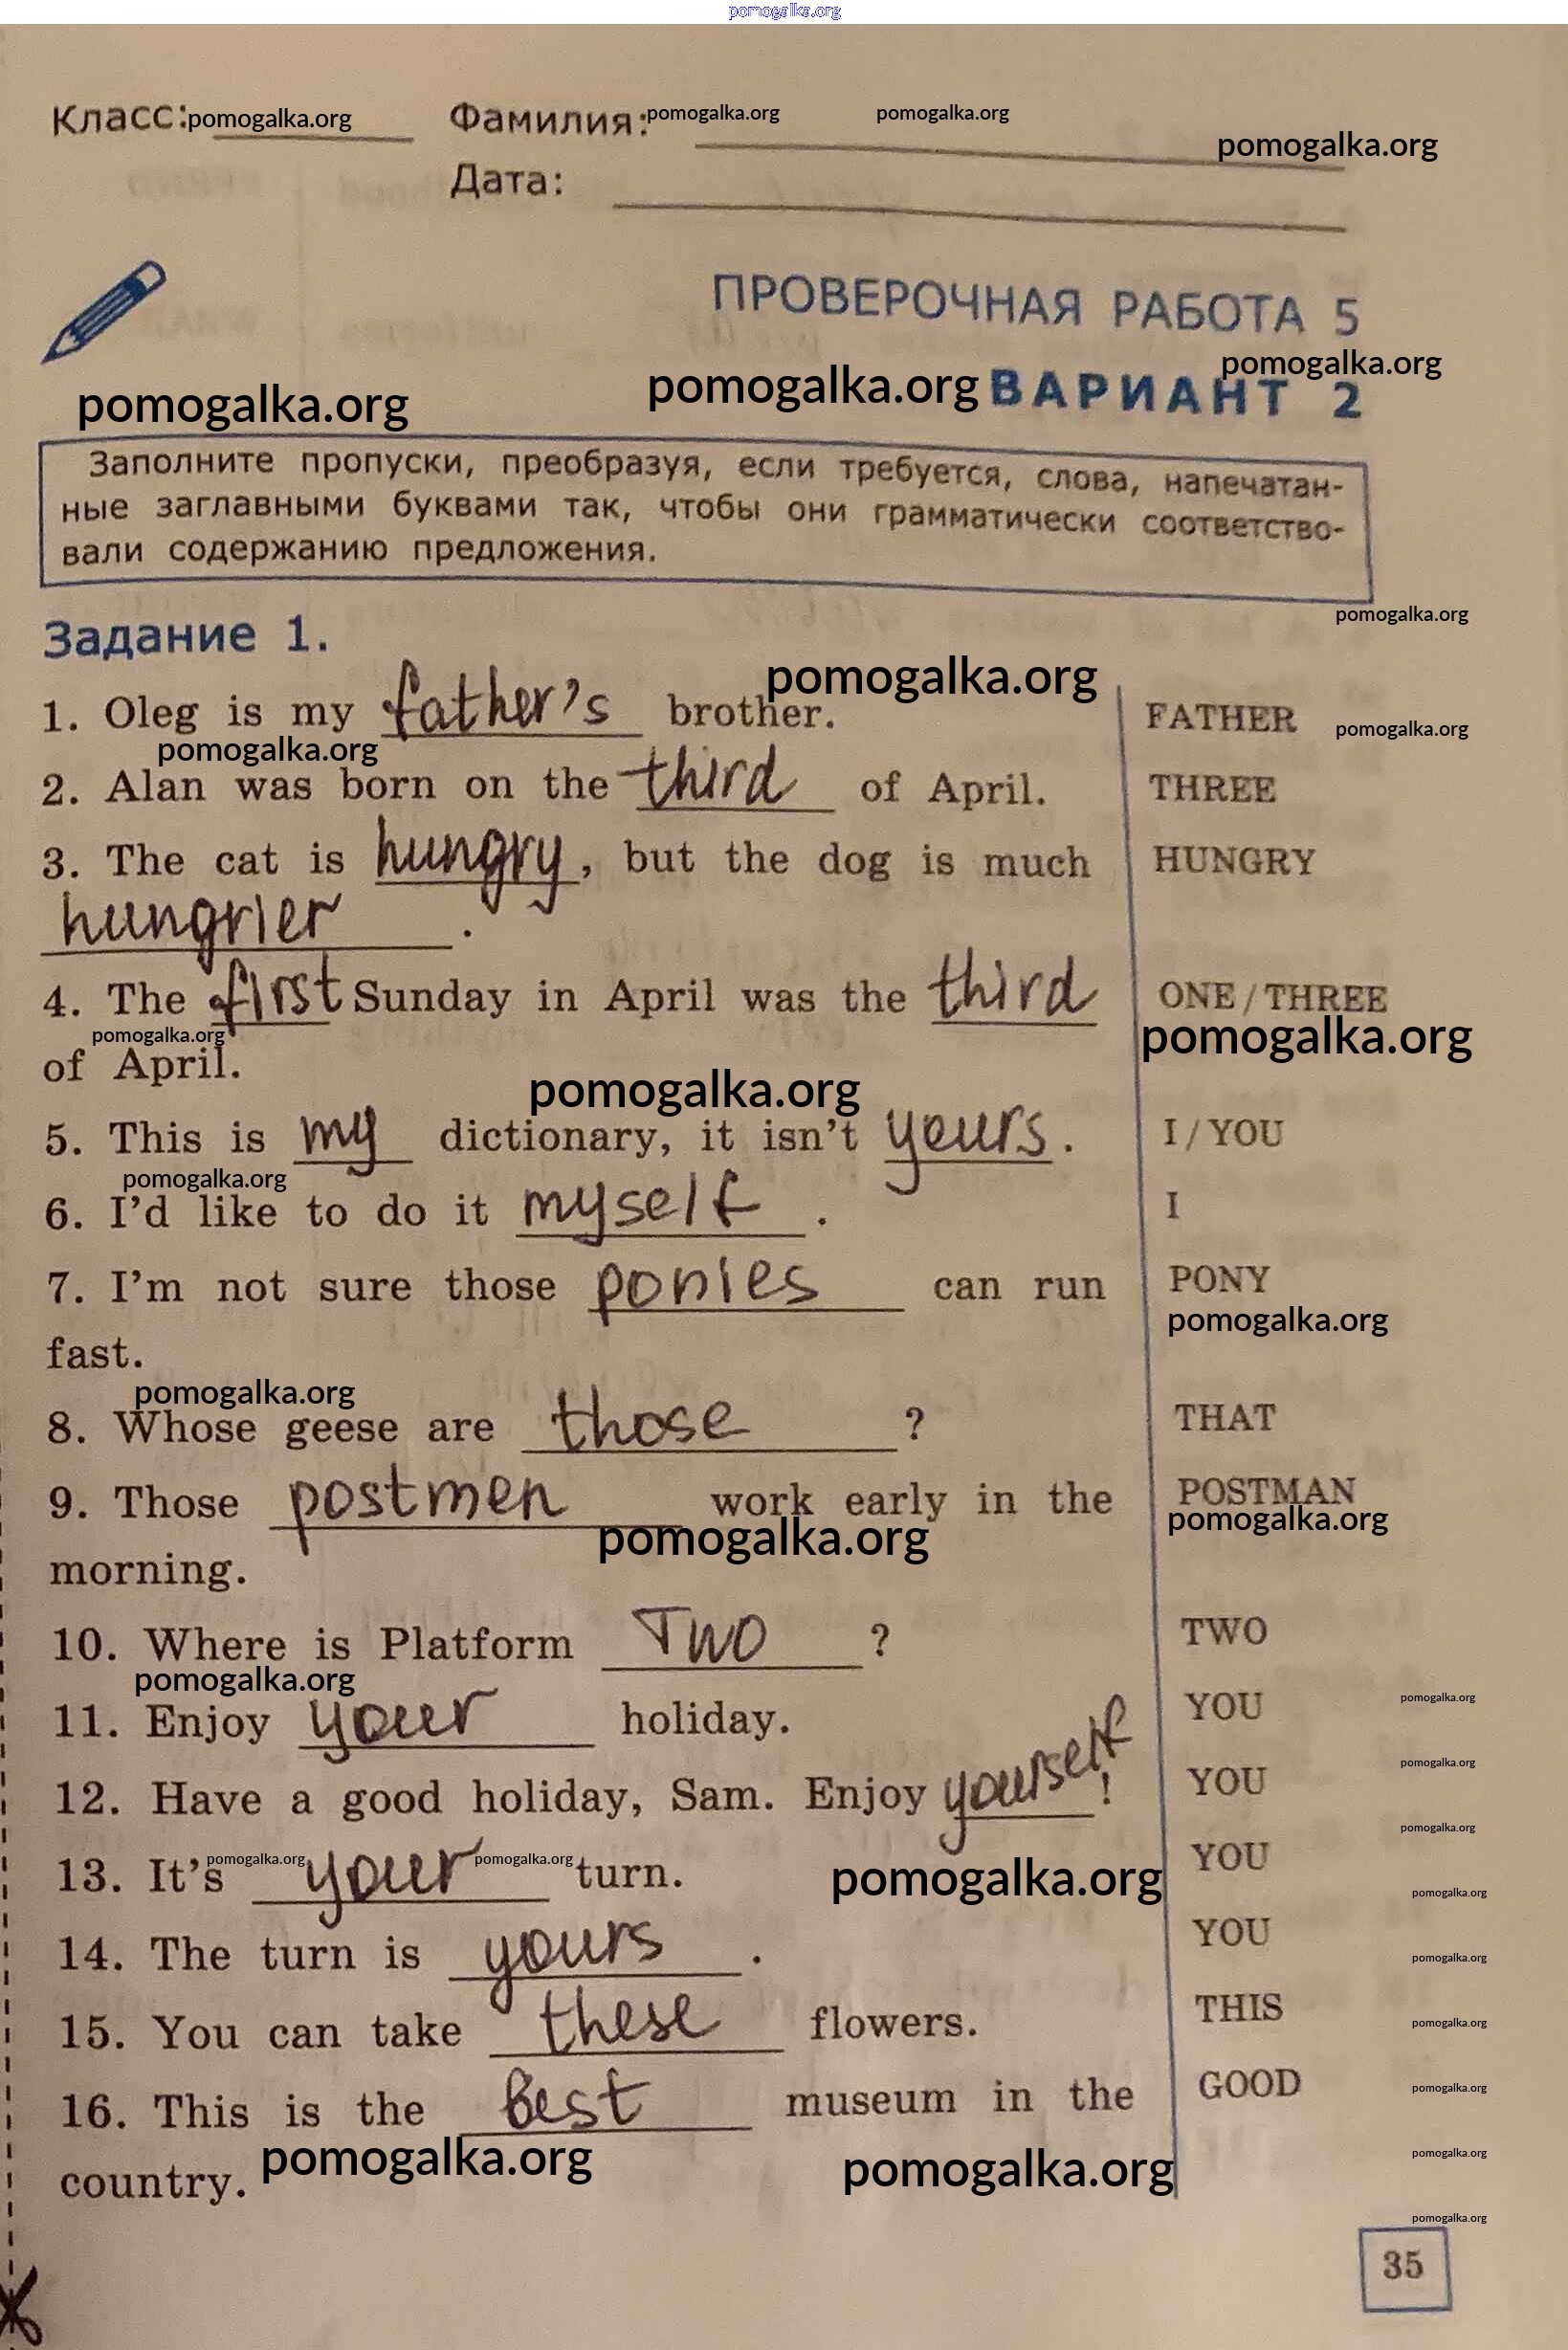 pomogalka.org
Класс: pomogalka.org Фамилия: pomogalka.org pomogalka.org
pomogalka.org
Дата:
ПРОВЕРОЧНАЯ РАБОТА 5
pomogalka.org
pomogalka.org pomogalka.org ВАРИАНТ 2
Заполните пропуски, преобразуя, если требуется, слова, напечатан-
ные заглавными буквами так, чтобы они грамматически соответство-
вали содержанию предложения.
pomogalka.org
Задание 1.
pomogalka.org
1. Oleg is my father's brother. FATHER pomogalka.org
pomogalka.org
2. Alan was born on the third of April. THREE
3. The cat is hungry, but the dog is much HUNGRY
hungrier.
4. The first Sunday in April was the third ONE / THREE
pomogalka.org pomogalka.org
of April.
pomogalka.org
5. This is my dictionary, it isn't yours. I / YOU
pomogalka.org
6. I'd like to do it myself. I
7. I'm not sure those ponies can run PONY
pomogalka.org
fast.
pomogalka.org
8. Whose geese are those? THAT
9. Those postmen work early in the POSTMAN
pomogalka.org pomogalka.org
morning.
10. Where is Platform Two? TWO
pomogalka.org
11. Enjoy your holiday. YOU pomogalka.org
pomogalka.org
12. Have a good holiday, Sam. Enjoy yourself! YOU
pomogalka.org
13. It's pomogalka.org your pomogalka.org turn. pomogalka.org YOU
pomogalka.org
14. The turn is yours. YOU pomogalka.org
15. You can take these flowers. THIS pomogalka.org
16. This is the best museum in the GOOD pomogalka.org
country. pomogalka.org pomogalka.org pomogalka.org
pomogalka.org
35